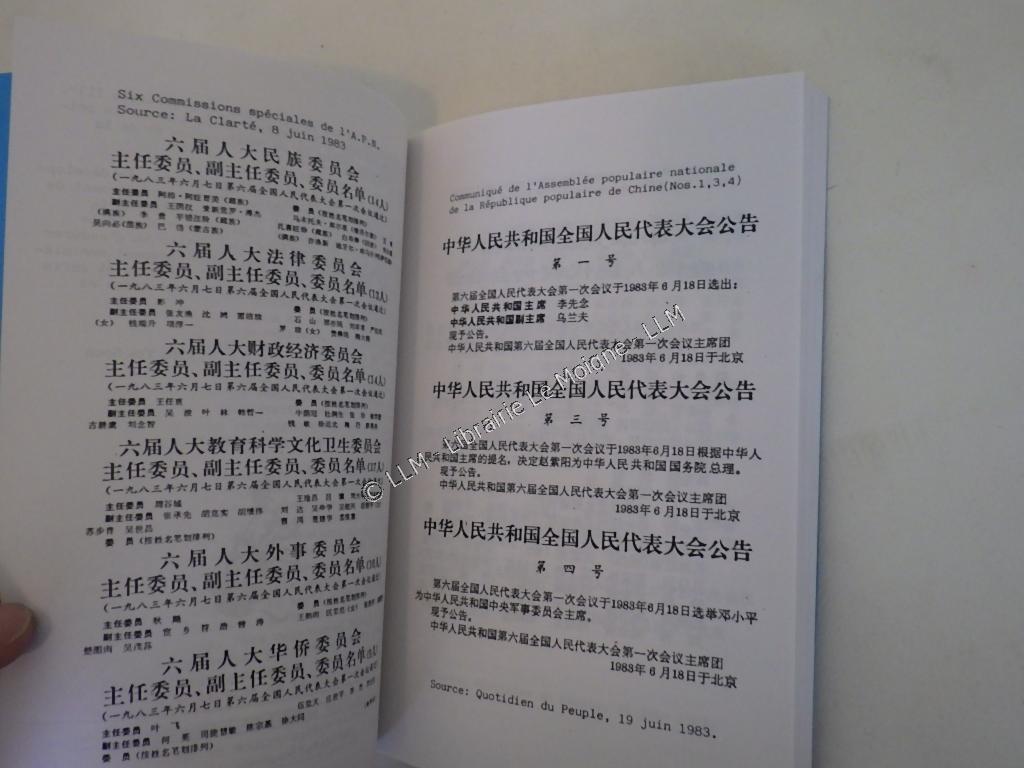 Six Commissions spéciales de l'A.P.N.
Source: La Clarté, 8 juin 1983
六届人大民族委员会
主任委员、副主任委员、委员名单(14人)
(一九八三年六月七日第六届全国人民代表大会第一次会议通过)
主任委员 阿沛·阿旺晋美(藏族)
六届人大法律委员会
主任委员、副主任委员、委员名单(12人)
(一九八三年六月七日第六届全国人民代表大会第一次会议通过)
主任委员 彭冲 委员(按姓名笔划排列)
六届人大财政经济委员会
主任委员、副主任委员、委员名单(14人)
(一九八三年六月七日第六届全国人民代表大会第一次会议通过)
主任委员 王任重 委员(按姓名笔划排列)
六届人大教育科学文化卫生委员会
主任委员、副主任委员、委员名单(17人)
(一九八三年六月七日第六届全国人民代表大会第一次会议通过)
主任委员 周谷城
苏步青 吴世昌
委员(按姓名笔划排列)
六届人大外事委员会
主任委员、副主任委员、委员名单(10人)
(一九八三年六月七日第六届全国人民代表大会第一次会议通过)
主任委员 耿飚
楚图南 吴茂荪
六届人大华侨委员会
主任委员、副主任委员、委员名单
(一九八三年六月七日第六届全国人民代表大会第一次会议通过)
主任委员 叶飞
委员(按姓名笔划排列)
Communiqué de l'Assemblée populaire nationale
de la République populaire de Chine(Nos.1,3,4)
中华人民共和国全国人民代表大会公告
第一号
第六届全国人民代表大会第一次会议于1983年6月18日选出:
中华人民共和国主席 李先念
中华人民共和国副主席 乌兰夫
现予公告。
中华人民共和国第六届全国人民代表大会第一次会议主席团
1983年6月18日于北京
中华人民共和国全国人民代表大会公告
第三号
六届全国人民代表大会第一次会议于1983年6月18日根据中华人
民共和国主席的提名,决定赵紫阳为中华人民共和国国务院总理。
现予公告。
中华人民共和国第六届全国人民代表大会第一次会议主席团
1983年6月18日于北京
中华人民共和国全国人民代表大会公告
第四号
第六届全国人民代表大会第一次会议于1983年6月18日选举邓小平
为中华人民共和国中央军事委员会主席。
现予公告。
中华人民共和国第六届全国人民代表大会第一次会议主席团
1983年6月18日于北京
Source: Quotidien du Peuple, 19 juin 1983.
© LLM - Librairie Le Moigne - LLM